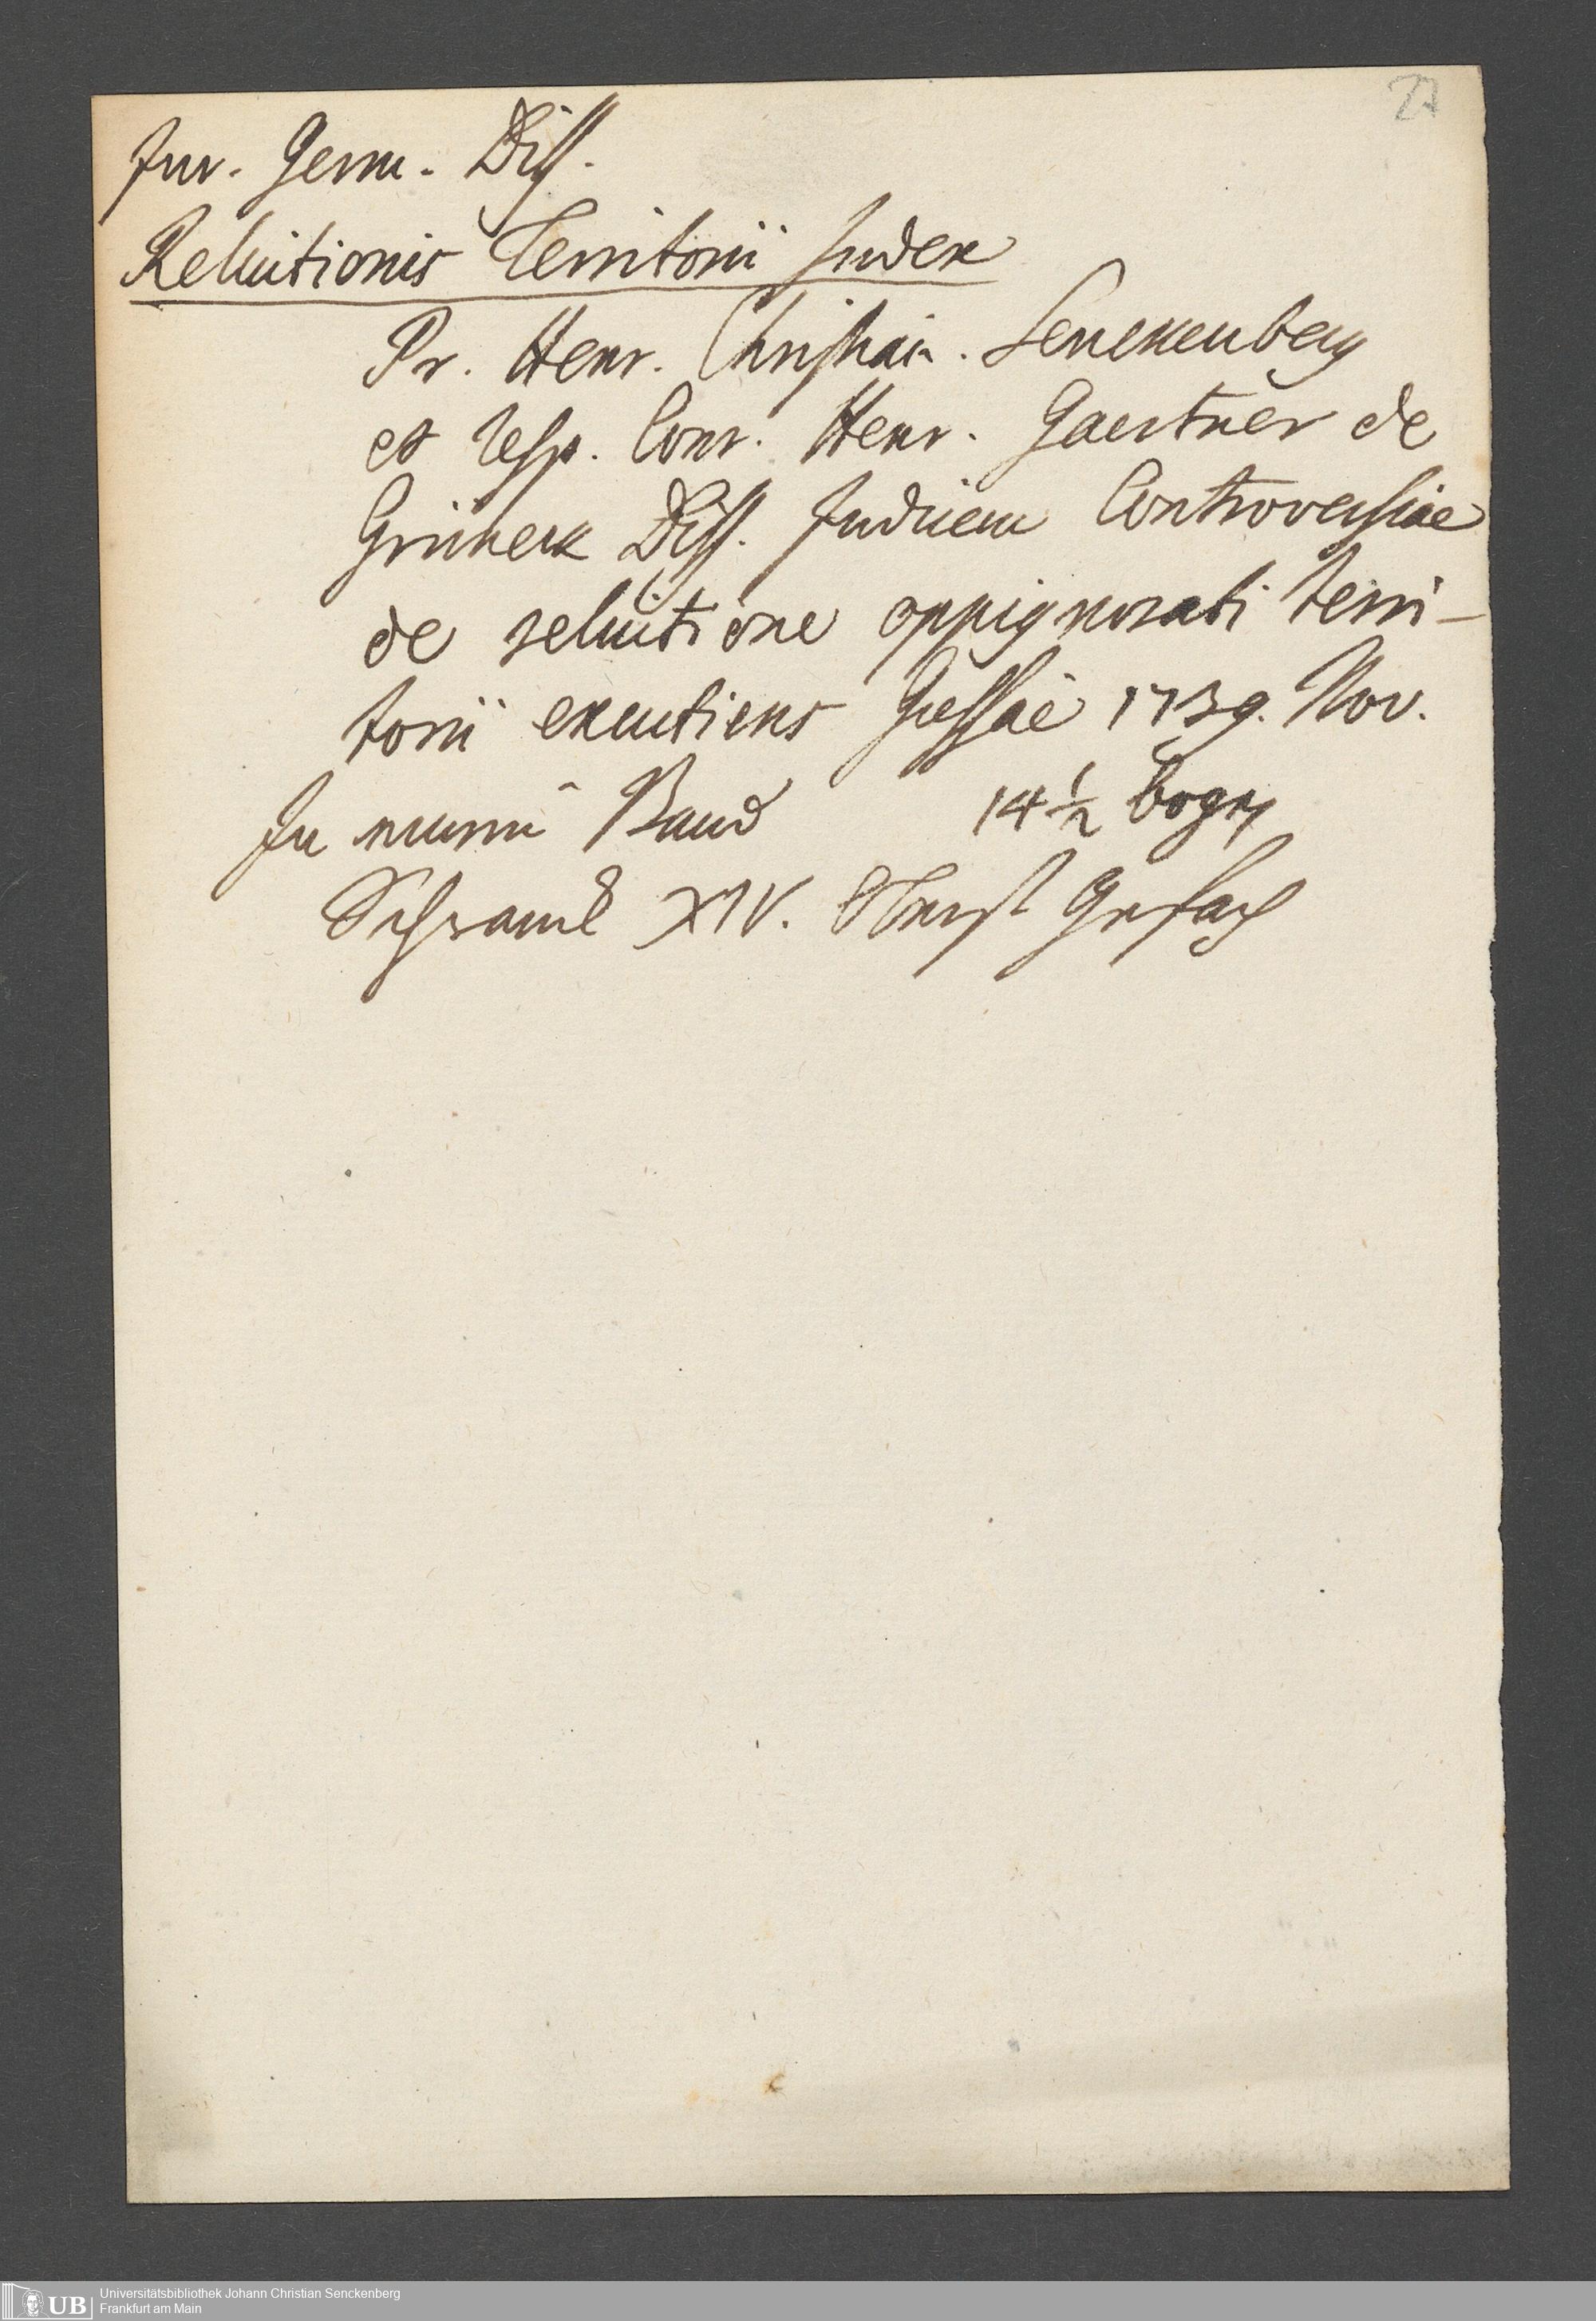 27
Jur. Germ. Diss.
Reluitionis Territorii Judex
Pr. Henr. Christian. Senckenberg
et resp. Conr. Henr. Gaertner de
Diss. Judicem Controversiae
de reluitione oppignorati terri-
torii excutiens Giessae 1739. Nov.
In Band 14 1/2 bogen
Schrank XIV. Gefach
UB Universitätsbibliothek Johann Christian Senckenberg
Frankfurt am Main